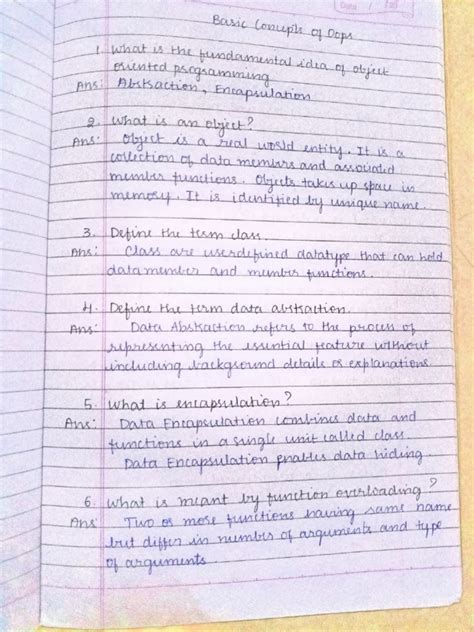 Date / 20
Basic Concepts of Oops
1. What is the fundamental idea of object
oriented programming
Ans: Abstraction, Encapsulation
2. What is an object?
Ans: Object is a real world entity. It is a
collection of data members and associated
member functions. Objects takes up space in
memory. It is identified by unique name.
3. Define the term class.
Ans: Class are userdefined datatype that can hold
data member and member functions.
4. Define the term data abstraction.
Ans: Data Abstraction refers to the process of
representing the essential feature without
including background details or explanations
5. What is encapsulation?
Ans: Data Encapsulation combines data and
functions in a single unit called class.
Data Encapsulation enables data hiding.
6. What is meant by function overloading?
Ans Two or more functions having same name
but differ in number of arguments and type
of arguments.